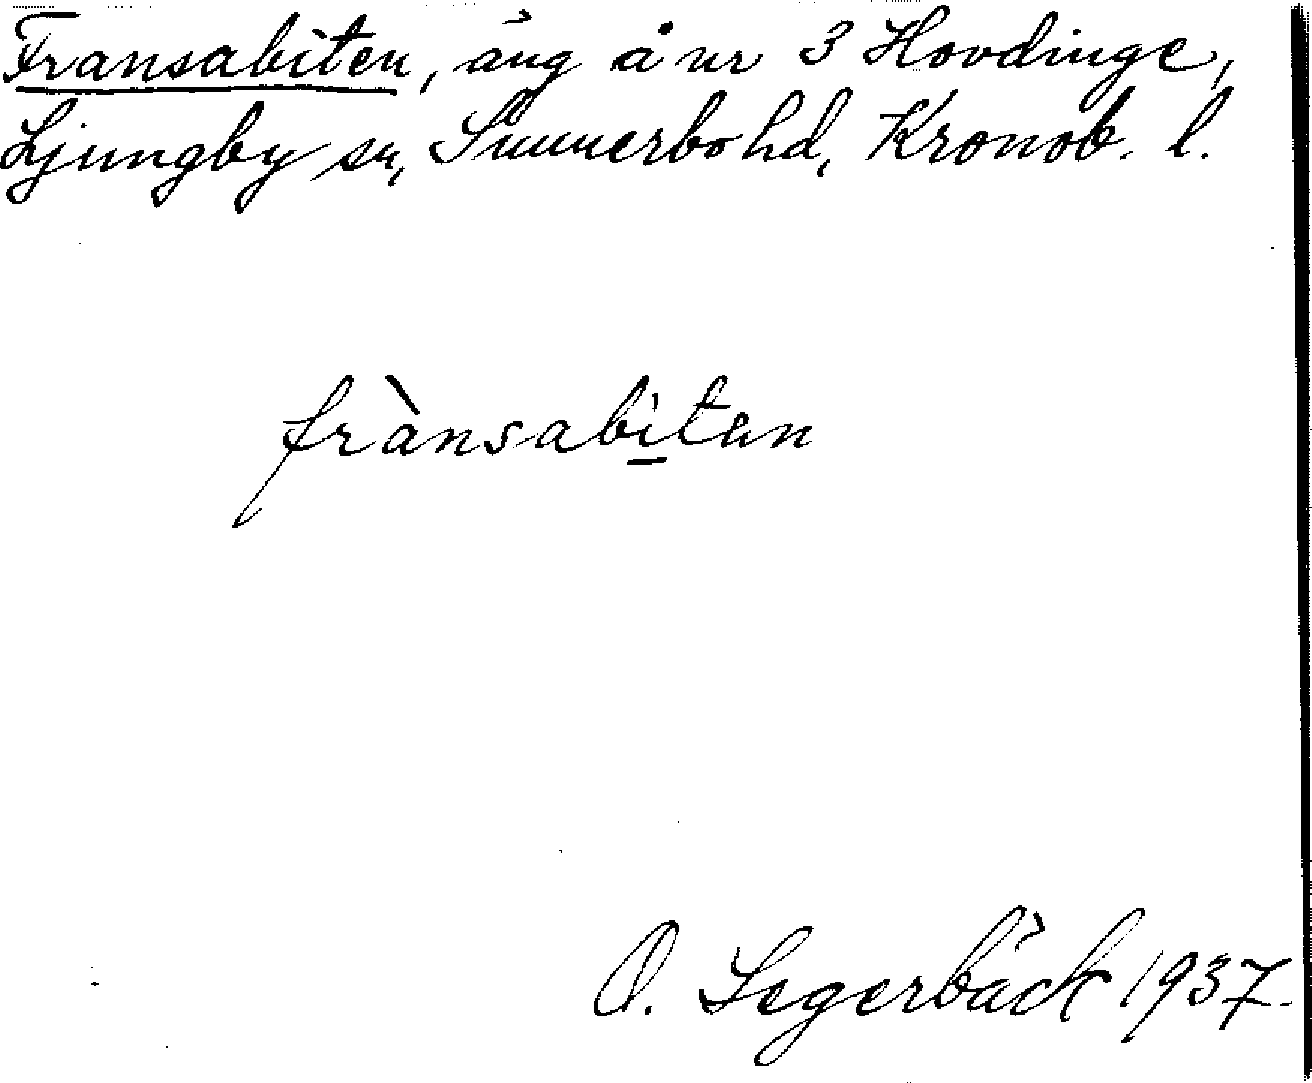 Fransabiten, äng å nr 3 Hovdinge,
Ljungby sn, Sunnerbo hd, Kronob. l.
frànsabi̲tan
O. Segerbäck 1937.